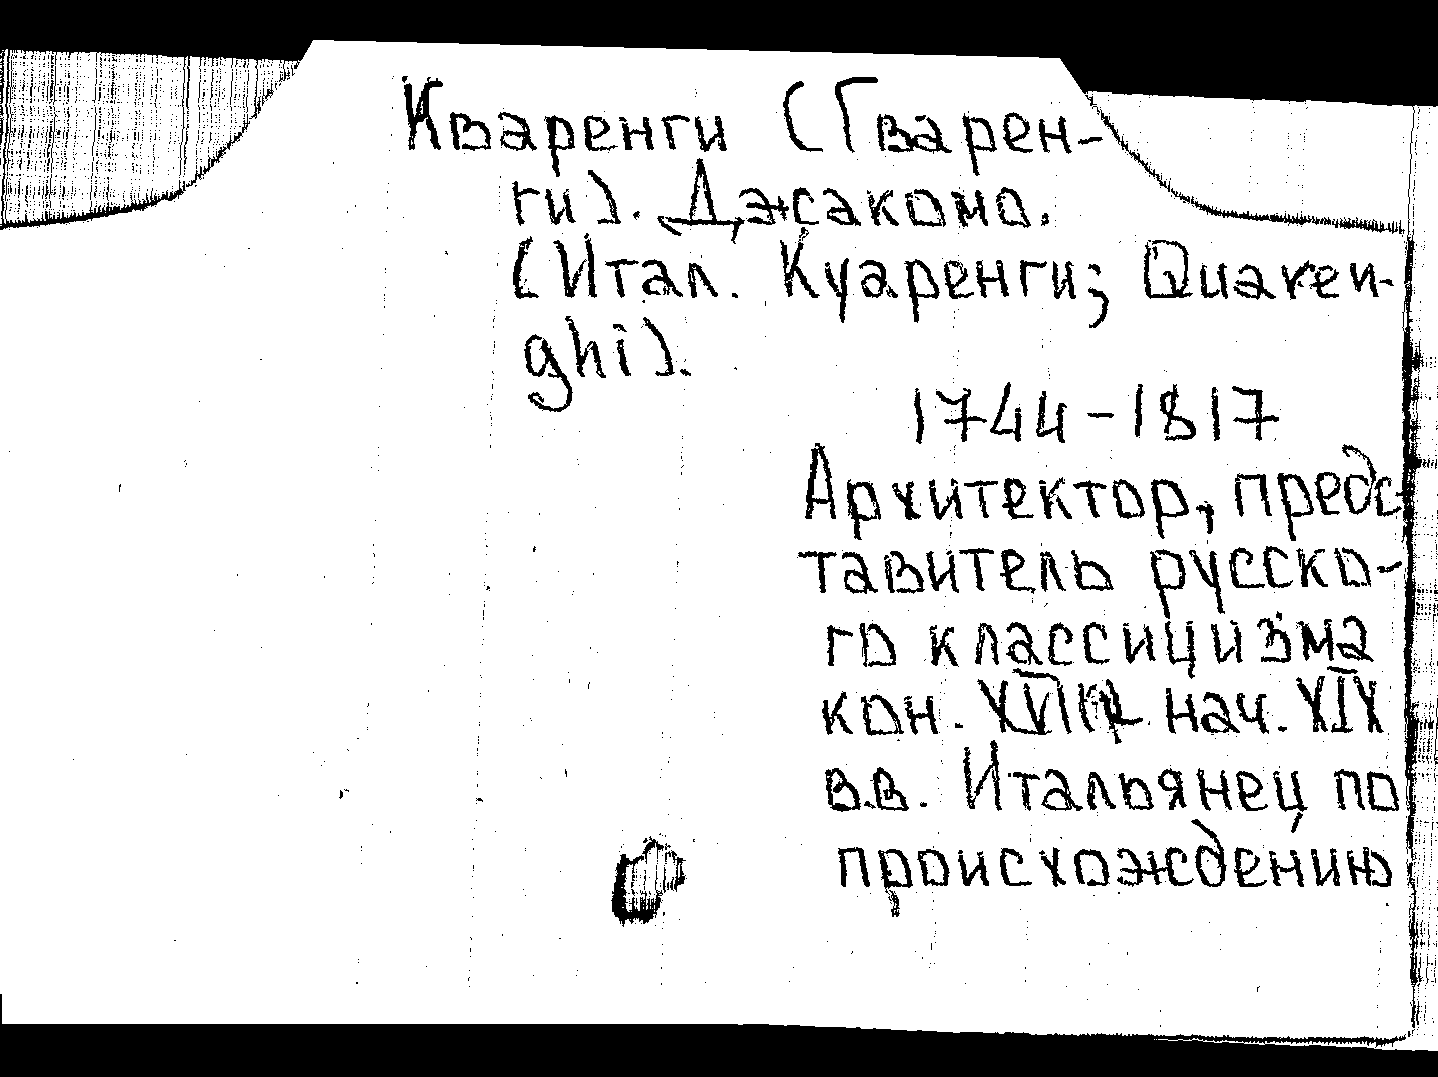 Кваренги (Гварен-
ги). Джакомо.
(Итал. Куаренги; Quaren-
ghi).
1744-1817
Архитектор, предс-
тавитель русско-
го классицизма
кон. XVIII нач. XIX
в.в. Итальянец по
происхождению